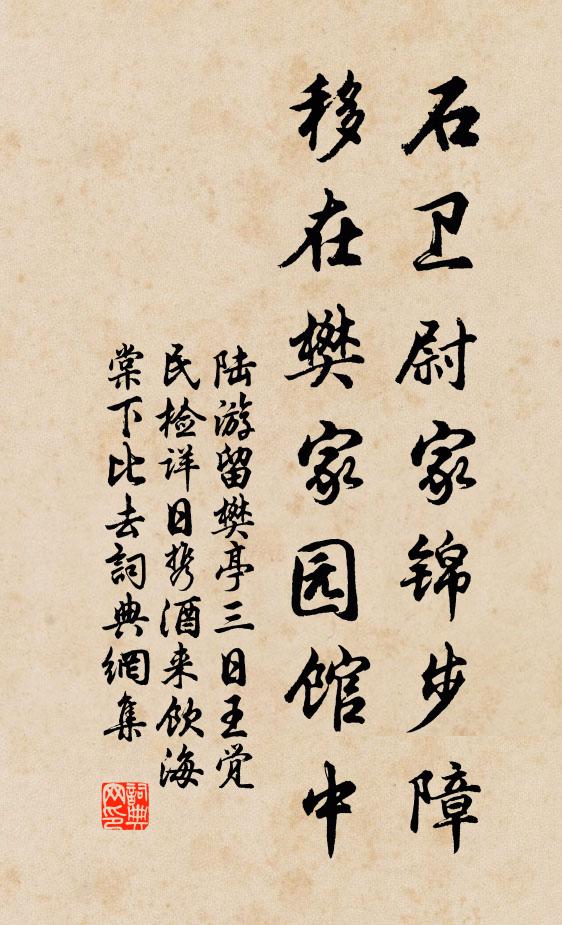 石卫尉家锦步障
移在樊家园馆中
陆游留樊亭三日王觉
民检详日携酒来饮海
棠下比去詞典網集
詞典
网印